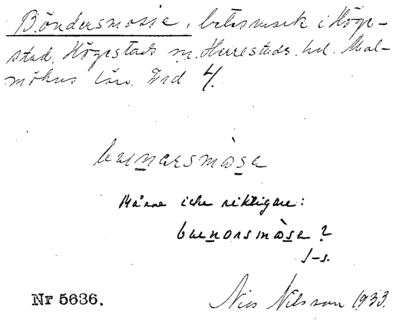 Böndersmosse, betesmark i Höge-
stad, Högestads sn. Herrestads hd. Mal-
möhus län. Ead 4.
buenarsmåsa
Månne icke riktigare:
buenorsmåsa?
J-s.
Nr 5636.
Nils Nilsson 1933.